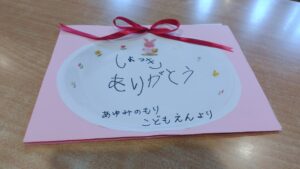 しょっき
ありがとう
あゆみのもり
こどもえんより